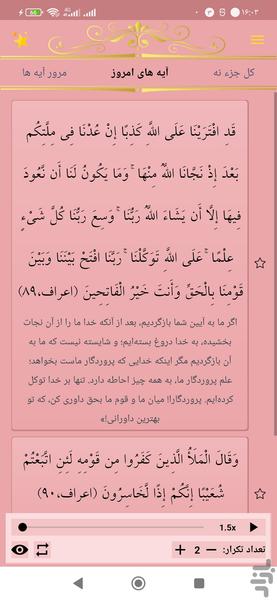 ۱۶:۰۳
کل جزء نه
آیه های امروز
مرور آیه ها
قَدِ افْتَرَيْنَا عَلَى اللَّهِ كَذِبًا إِنْ عُدْنَا فِي مِلَّتِكُم
بَعْدَ إِذْ نَجَّانَا اللَّهُ مِنْهَا ۚ وَمَا يَكُونُ لَنَا أَن نَّعُودَ
فِيهَا إِلَّا أَن يَشَاءَ اللَّهُ رَبُّنَا ۚ وَسِعَ رَبُّنَا كُلَّ شَيْءٍ
عِلْمًا ۚ عَلَى اللَّهِ تَوَكَّلْنَا ۚ رَبَّنَا افْتَحْ بَيْنَنَا وَبَيْنَ
قَوْمِنَا بِالْحَقِّ وَأَنتَ خَيْرُ الْفَاتِحِينَ (اعراف،۸۹)
اگر ما به آیین شما بازگردیم، بعد از آنکه خدا ما را از آن نجات
بخشیده، به خدا دروغ بسته‌ایم؛ و شایسته نیست که ما به
آن بازگردیم مگر اینکه خدایی که پروردگار ماست بخواهد؛
علم پروردگار ما، به همه چیز احاطه دارد. تنها بر خدا توکل
کرده‌ایم. پروردگارا! میان ما و قوم ما بحق داوری کن، که تو
بهترین داورانی!»
وَقَالَ الْمَلَأُ الَّذِينَ كَفَرُوا مِن قَوْمِهِ لَئِنِ اتَّبَعْتُمْ
شُعَيْبًا إِنَّكُمْ إِذًا لَّخَاسِرُونَ (اعراف،۹۰)
1.5x
تعداد تکرار: − 2 +
بازار